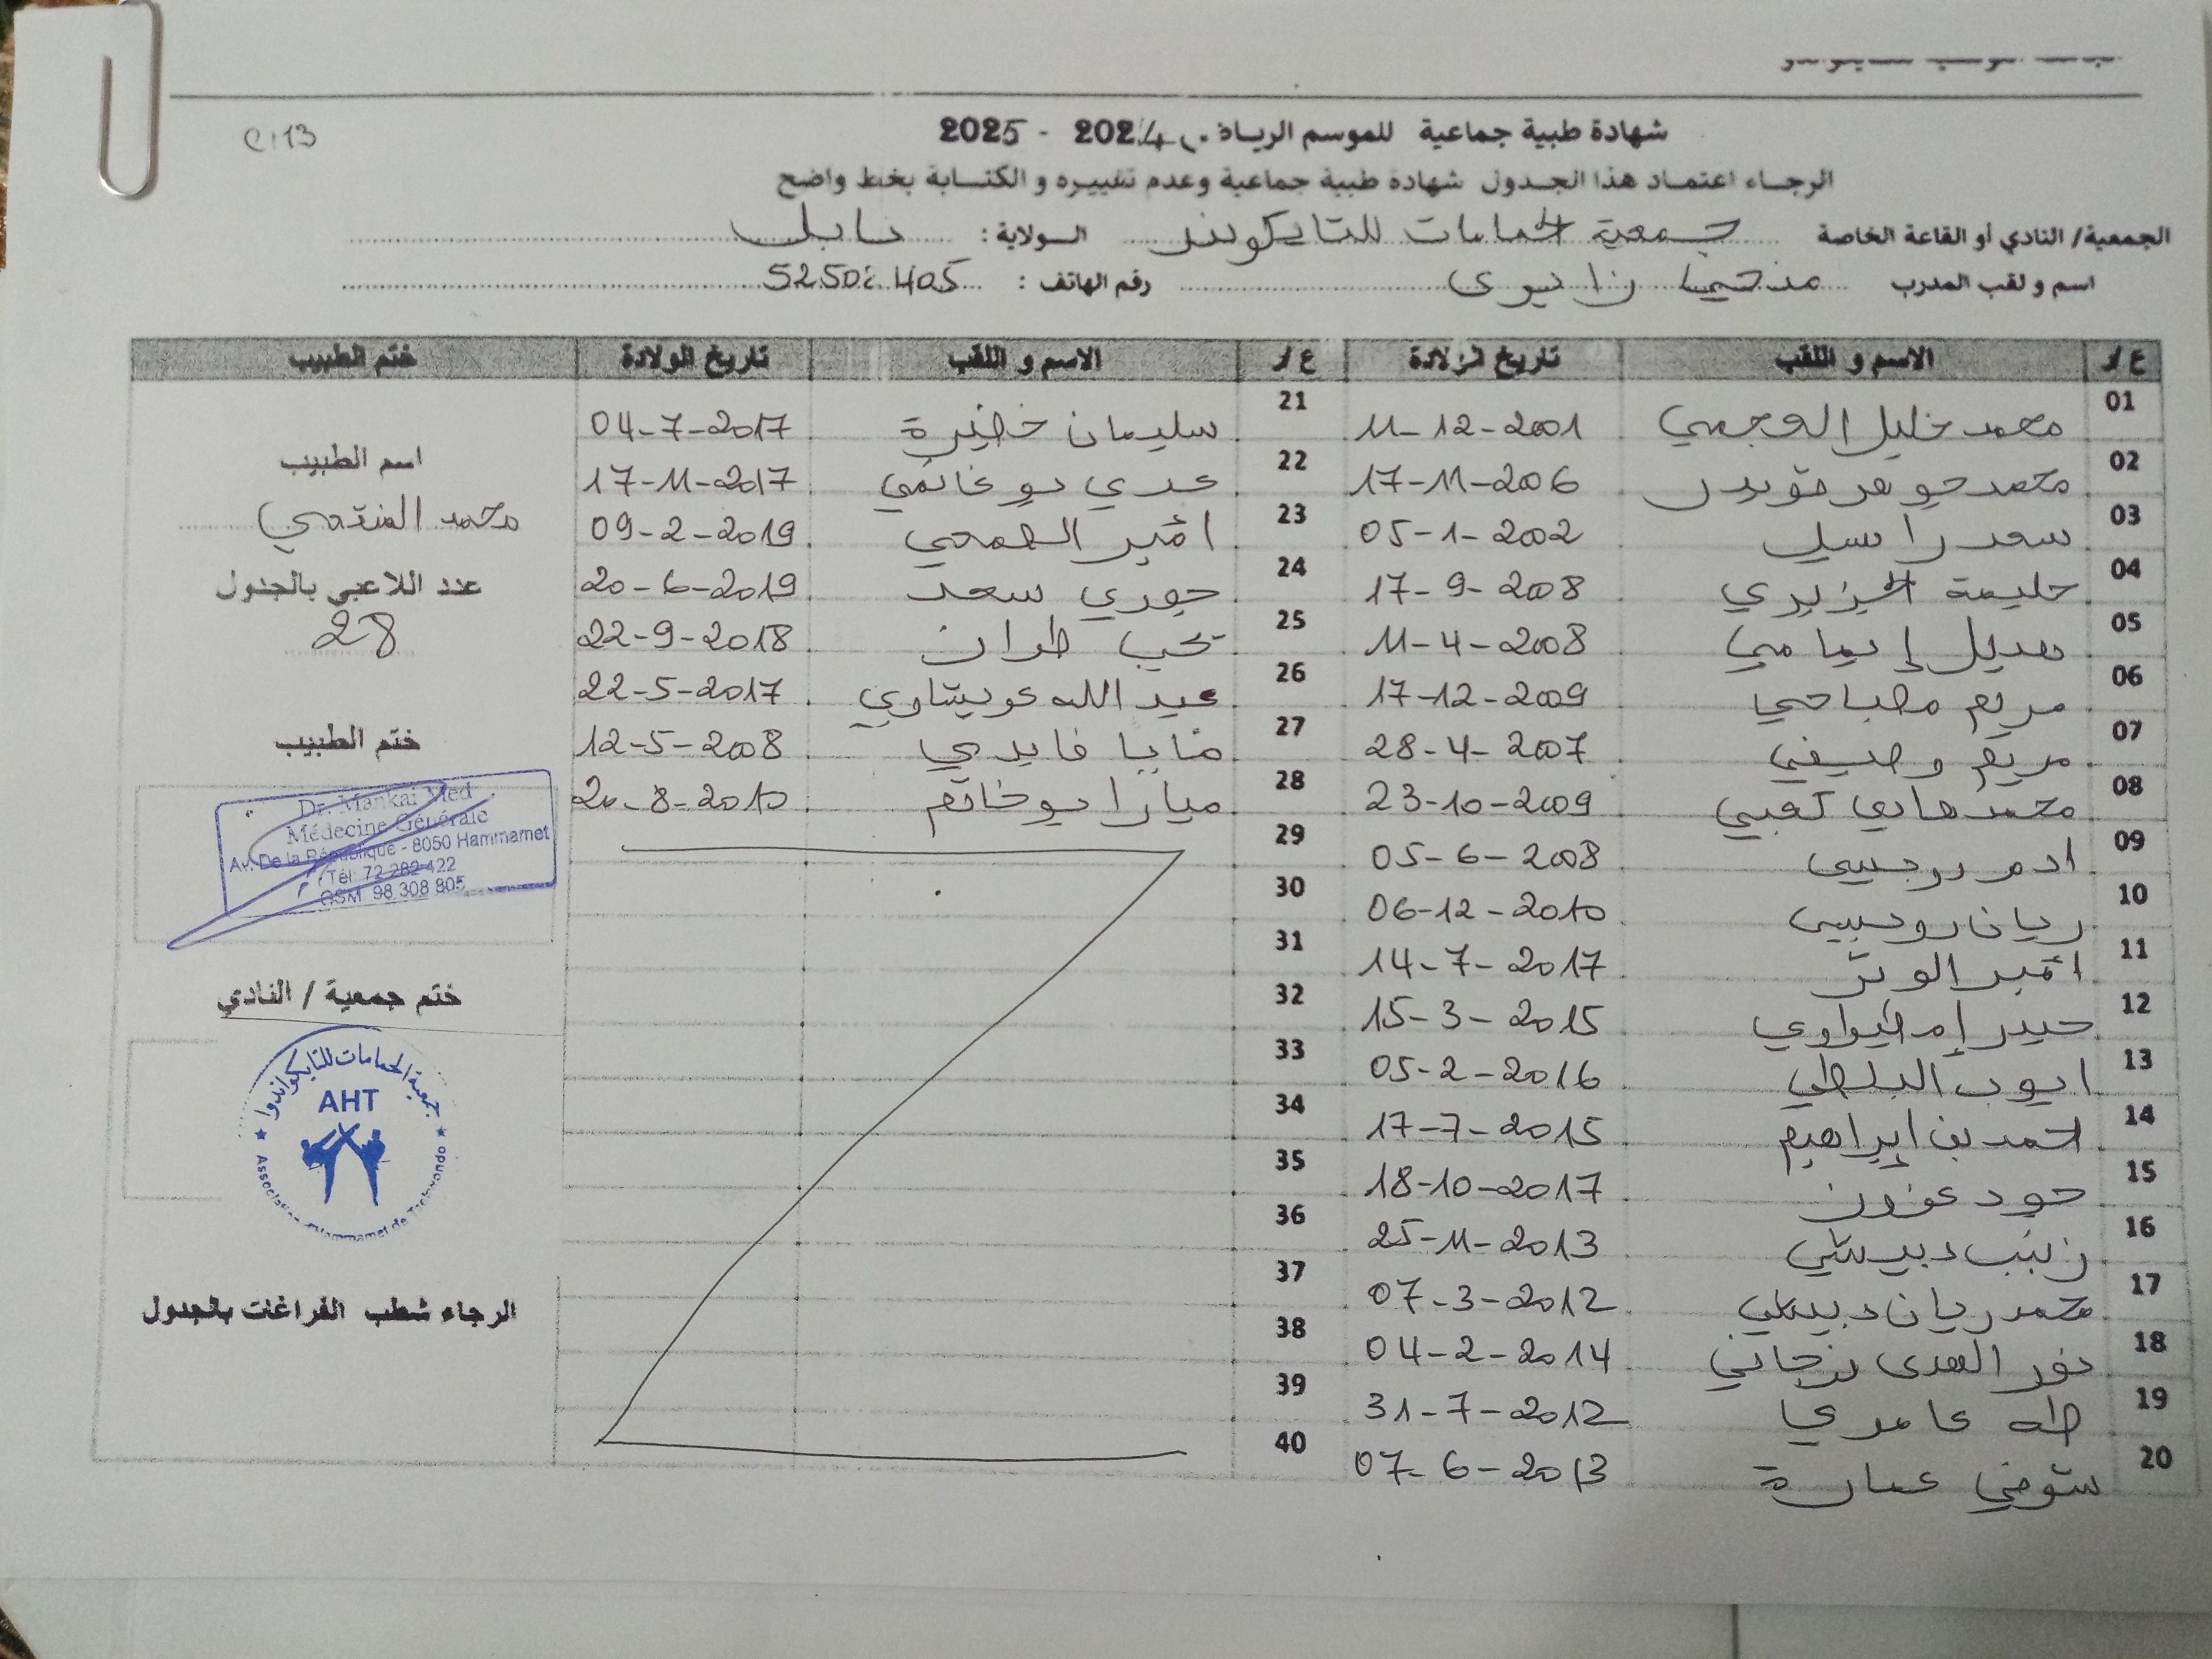 شهادة طبية جماعية للموسم الرياضي 2024 - 2025
الرجاء اعتماد هذا الجدول شهادة طبية جماعية وعدم تغييره و الكتابة بخط واضح
الجمعية/ النادي أو القاعة الخاصة جمعية الحمامات للتايكوندو الولاية: نابل
اسم و لقب المدرب رقم الهاتف :
ع/ر الاسم و اللقب تاريخ الولادة ع/ر الاسم و اللقب تاريخ الولادة ختم الطبيب
01 محمد خليل 11-12-2001 21 سليمان خضيرة 04-7-2017
02 محمد 17-11-2006 22 عدي بوغانمي 17-11-2017
03 سعد راسل 05-1-2002 23 09-2-2019
04 حليمة الجزيري 17-9-2008 24 جوري سعد 20-6-2019
05 هديل إمامي 11-4-2008 25 22-9-2018
06 مريم مصباحي 17-12-2009 26 عبد الله عويشاوي 22-5-2017
07 مريم وصيفي 28-4-2007 27 مايا فايدي 12-5-2008
08 محمد هادي كعبي 23-10-2009 28 ميارا بوخاتم 20-8-2010
09 ادم 05-6-2008 29
10 ريان 06-12-2010 30
11 14-7-2017 31
12 حيدر 15-3-2015 32
13 ايوب البلطي 05-2-2016 33
14 احمد بن إبراهيم 17-7-2015 34
15 18-10-2017 35
16 زينب دبيشي 25-11-2013 36
17 محمد ريان دبيشي 07-3-2012 37
18 نور الهدى 04-2-2014 38
19 طه عامري 31-7-2012 39
20 عمارة 07-6-2013 40
اسم الطبيب
محمد المنقعي
عدد اللاعبي بالجدول
28
ختم الطبيب
Dr. Mankai Med
Médecine Générale
Av. De la République - 8050 Hammamet
Tél: 72 282 422
GSM 98 308 805
ختم جمعية / النادي
جمعية الحمامات للتايكواندوا
AHT
Association d'Hammamet de Taekwondo
الرجاء شطب الفراغات بالجدول